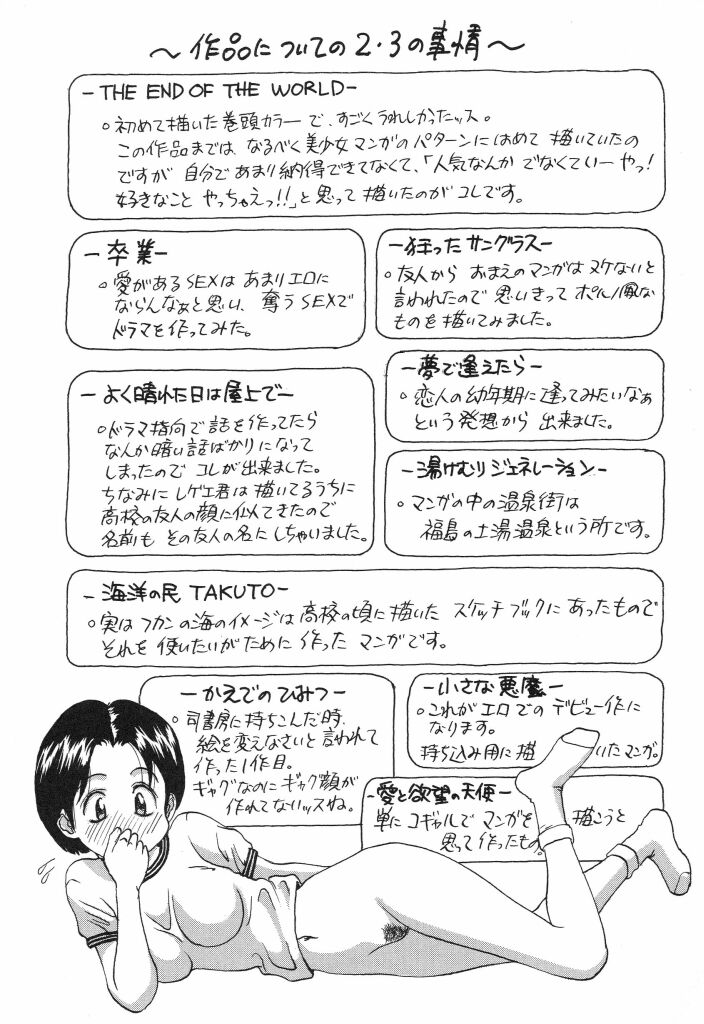 ～作品についての2・3の事情～
－THE END OF THE WORLD－
○初めて描いた巻頭カラーで、すごくうれしかったッス。
この作品までは、なるべく美少女マンガのパターンにはめて描いていたの
ですが自分であまり納得できてなくて、「人気なんかでなくていーやっ!
好きなことやっちゃえっ!!」と思って描いたのがコレです。
－卒業－
○愛があるSEXはあまりエロに
ならんなぁと思い、奪うSEXで
ドラマを作ってみた。
－狂ったサングラス－
○友人からおまえのマンガはヌケないと
言われたので思いきってポルノ風な
ものを描いてみました。
－夢で逢えたら－
○恋人の幼年期に逢ってみたいなぁ
という発想から出来ました。
－よく晴れた日は屋上で－
○ドラマ指向で話を作ってたら
なんか暗い話ばかりになって
しまったのでコレが出来ました。
ちなみにレゲエ君は描いてるうちに
高校の友人の顔に似てきたので
名前もその友人の名にしちゃいました。
－湯けむりジェネレーション－
○マンガの中の温泉街は
福島の土湯温泉という所です。
－海洋の民 TAKUTO－
○実はフカンの海のイメージは高校の頃に描いたスケッチブックにあったもので
それを使いたいがために作ったマンガです。
－かえでのひみつ－
○司書房に持ちこんだ時、
絵を変えなさいと言われて
作った1作目。
ギャグなのにギャグ顔が
作れてないッスね。
－小さな悪魔－
○これがエロでのデビュー作に
なります。
持ち込み用に描いたマンガ。
－愛と欲望の天使－
単にコギャルでマンガを描こうと
思って作ったもの。